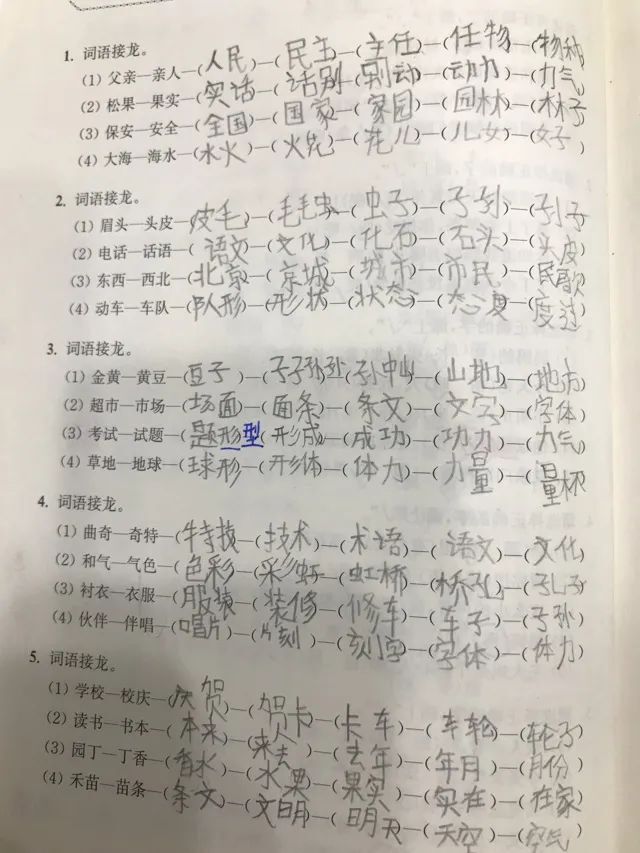 1. 词语接龙。
(1) 父亲—亲人—(人民)—(民主)—(主任)—(任物)—(物种)
(2) 松果—果实—(实话)—(话别)—(别动)—(动力)—(力气)
(3) 保安—安全—(全国)—(国家)—(家园)—(园林)—(林子)
(4) 大海—海水—(水火)—(火花)—(花儿)—(儿女)—(女子)
2. 词语接龙。
(1) 眉头—头皮—(皮毛)—(毛毛虫)—(虫子)—(子孙)—(孙子)
(2) 电话—话语—(语文)—(文化)—(化石)—(石头)—(头皮)
(3) 东西—西北—(北京)—(京城)—(城市)—(市民)—(民歌)
(4) 动车—车队—(队形)—(形状)—(状态)—(态度)—(度过)
3. 词语接龙。
(1) 金黄—黄豆—(豆子)—(子子孙孙)(孙中山)—(山地)—(地方)
(2) 超市—市场—(场面)—(面条)—(条文)—(文字)—(字体)
(3) 考试—试题—(题形型(形成)—(成功)—(功力)—(力气)
(4) 草地—地球—(球形)—(形体)—(体力)—(力量)—(量杯)
4. 词语接龙。
(1) 曲奇—奇特—(特技)—(技术)—(术语)—(语文)—(文化)
(2) 和气—气色—(色彩)—(彩虹)—(虹桥)—(桥孔)—(孔子)
(3) 衬衣—衣服—(服装)—(装修)—(修车)—(车子)—(子孙)
(4) 伙伴—伴唱—(唱片)—(片刻)—(刻字)—(字体)—(体力)
5. 词语接龙。
(1) 学校—校庆—(庆贺)—(贺卡)—(卡车)—(车轮)—(轮子)
(2) 读书—书本—(本来)—(来去)—(去年)—(年月)—(月份)
(3) 园丁—丁香—(香水)—(水果)—(果实)—(实在)—(在家)
(4) 禾苗—苗条—(条文)—(文明)—(明天)—(天空)—(空气)